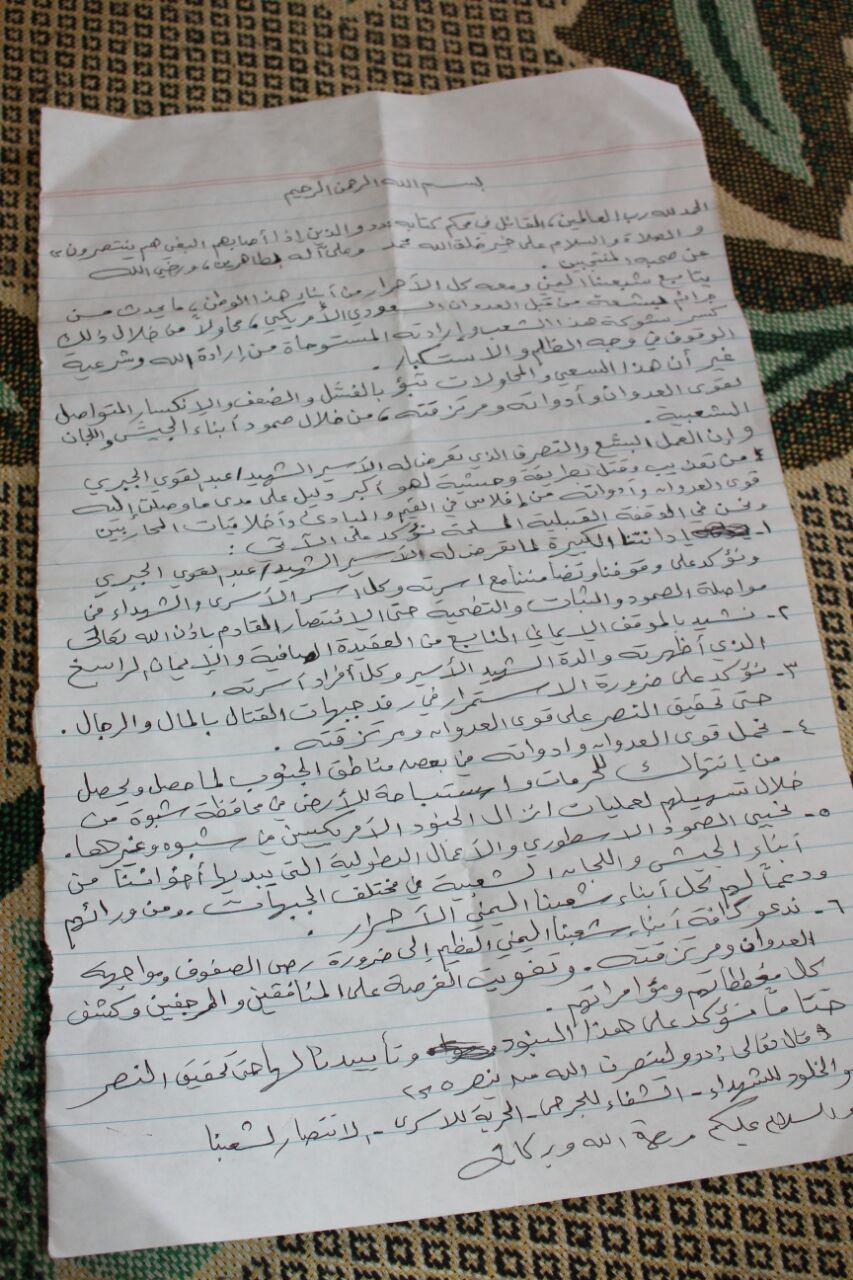 بسم الله الرحمن الرحيم
الحمد لله رب العالمين، القائل في محكم كتابه ((والذين إذا أصابهم البغي هم ينتصرون))
والصلاة والسلام على خير خلق الله محمد وعلى آله الطاهرين، ورضي الله
عن صحبه المنتجبين.
يتابع شعبنا اليمني ومعه كل الأحرار من أبناء هذا الوطن، ما يحدث من
جرائم بشعة من قبل العدوان السعودي الأمريكي، محاولاً من خلال ذلك
كسر شوكة هذا الشعب وإرادته المستوحاة من إرادة الله وشرعية
الوقوف في وجه الظالم والاستكبار.
غير أن هذا السعي والمحاولات تبؤ بالفشل والضعف والانكسار المتواصل
لقوى العدوان وأدواته ومرتزقته، من خلال صمود أبناء الجيش واللجان
الشعبية.
وإن العمل البشع والتصرف الذي تعرض له الأسير الشهيد/ عبدالقوي الجبري
من تعذيب وقتل بطريقة وحشية لهو أكبر دليل على مدى ما وصلت إليه
قوى العدوان وأدواته من إفلاس في القيم والمبادئ وأخلاقيات المحاربين
ونحن في الوقفة القبلية المسلحة نؤكد على الآتي:
١- إدانتنا الكبيرة لما تعرض له الأسير الشهيد/ عبدالقوي الجبري
ونؤكد على وقوفنا وتضامننا مع اسرته وكل اسر الأسرى والشهداء في
مواصلة الصمود والثبات والتضحية حتى الانتصار القادم بإذن الله تعالى
٢- نشيد بالموقف الإيماني النابع من العقيدة الصافية والإيمان الراسخ
الذي أظهرته والدة الشهيد الأسير وكل أفراد أسرته.
٣- نؤكد على ضرورة الاستمرار في رفد جبهات القتال بالمال والرجال.
حتى تحقيق النصر على قوى العدوان ومرتزقته.
٤- نحمل قوى العدوان وادواته في بعض مناطق الجنوب لما حصل ويحصل
من إنتهاك للحرمات واستباحة للأرض في محافظة شبوة من
خلال تسهيلهم لعمليات انزال الجنود الأمريكيين في شبوه وغيرها.
٥- نحيي الصمود الاسطوري والأعمال البطولية التي يبديها أخواننا من
أبناء الجيش واللجان الشعبية في مختلف الجبهات. ومن ورائهم
ودعماً لهم كل أبناء شعبنا اليمني الأحرار.
٦- ندعو كافة أبناء شعبنا اليمني العظيم إلى ضرورة رص الصفوف ومواجهة
العدوان ومرتزقته. وتفويت الفرصة على المنافقين والمرجفين وكشف
كل مخططاتهم ومؤامراتهم.
ختاماً نؤكد على هذا البنود وتأييدنا لها حتى تحقيق النصر
قال تعالى: ((ولينصرن الله من ينصره))
والخلود للشهداء - الشفاء للجرحى - الحرية للاسرى - الانتصار لشعبنا
والسلام عليكم ورحمة الله وبركاته